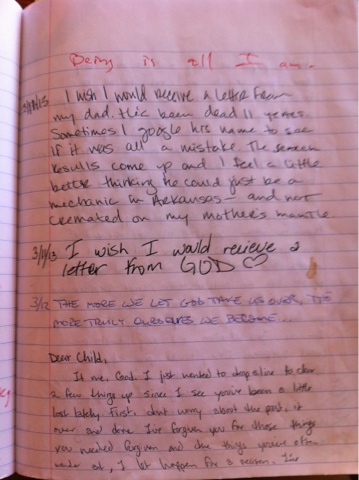 Being is all I am.
I wish I would receive a letter from
my dad. He's been dead 11 years.
Sometimes I google his name to see
if it was all a mistake. The search
results come up and I feel a little
better thinking he could just be a
mechanic in Arkansas - and not
cremated on my mother's mantle
3/11/13 I wish I would recieve a
letter from GOD ♡
3/12 THE MORE WE LET GOD TAKE US OVER, THE
MORE TRULY OURSELVES WE BECOME...
Dear Child,
It me, God. I just wanted to drop a line to clear
a few things up since I see you've been a little
lost lately. First, don't worry about the past, it
over and done. I've forgiven you for those things
you needed forgiven and the things you've
at, I let happen for a reason. I've